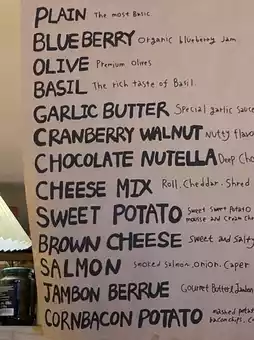 PLAIN The most Basic.
BLUEBERRY Organic blueberry Jam.
OLIVE Premium Olives
BASIL The rich taste of Basil.
GARLIC BUTTER Special garlic sauce
CRANBERRY WALNUT Nutty flavo
CHOCOLATE NUTELLA Deep Cho
CHEESE MIX Roll. Cheddar. Shred
SWEET POTATO Sweet Sweet Potato
mousse and Cream Che
BROWN CHEESE Sweet and Salty
SALMON Smoked Salmon, Onion. Caper
JAMBON BERRUE Gourmet Butter, Jambon
CORNBACON POTATO mashed potat
bacon chips. Co